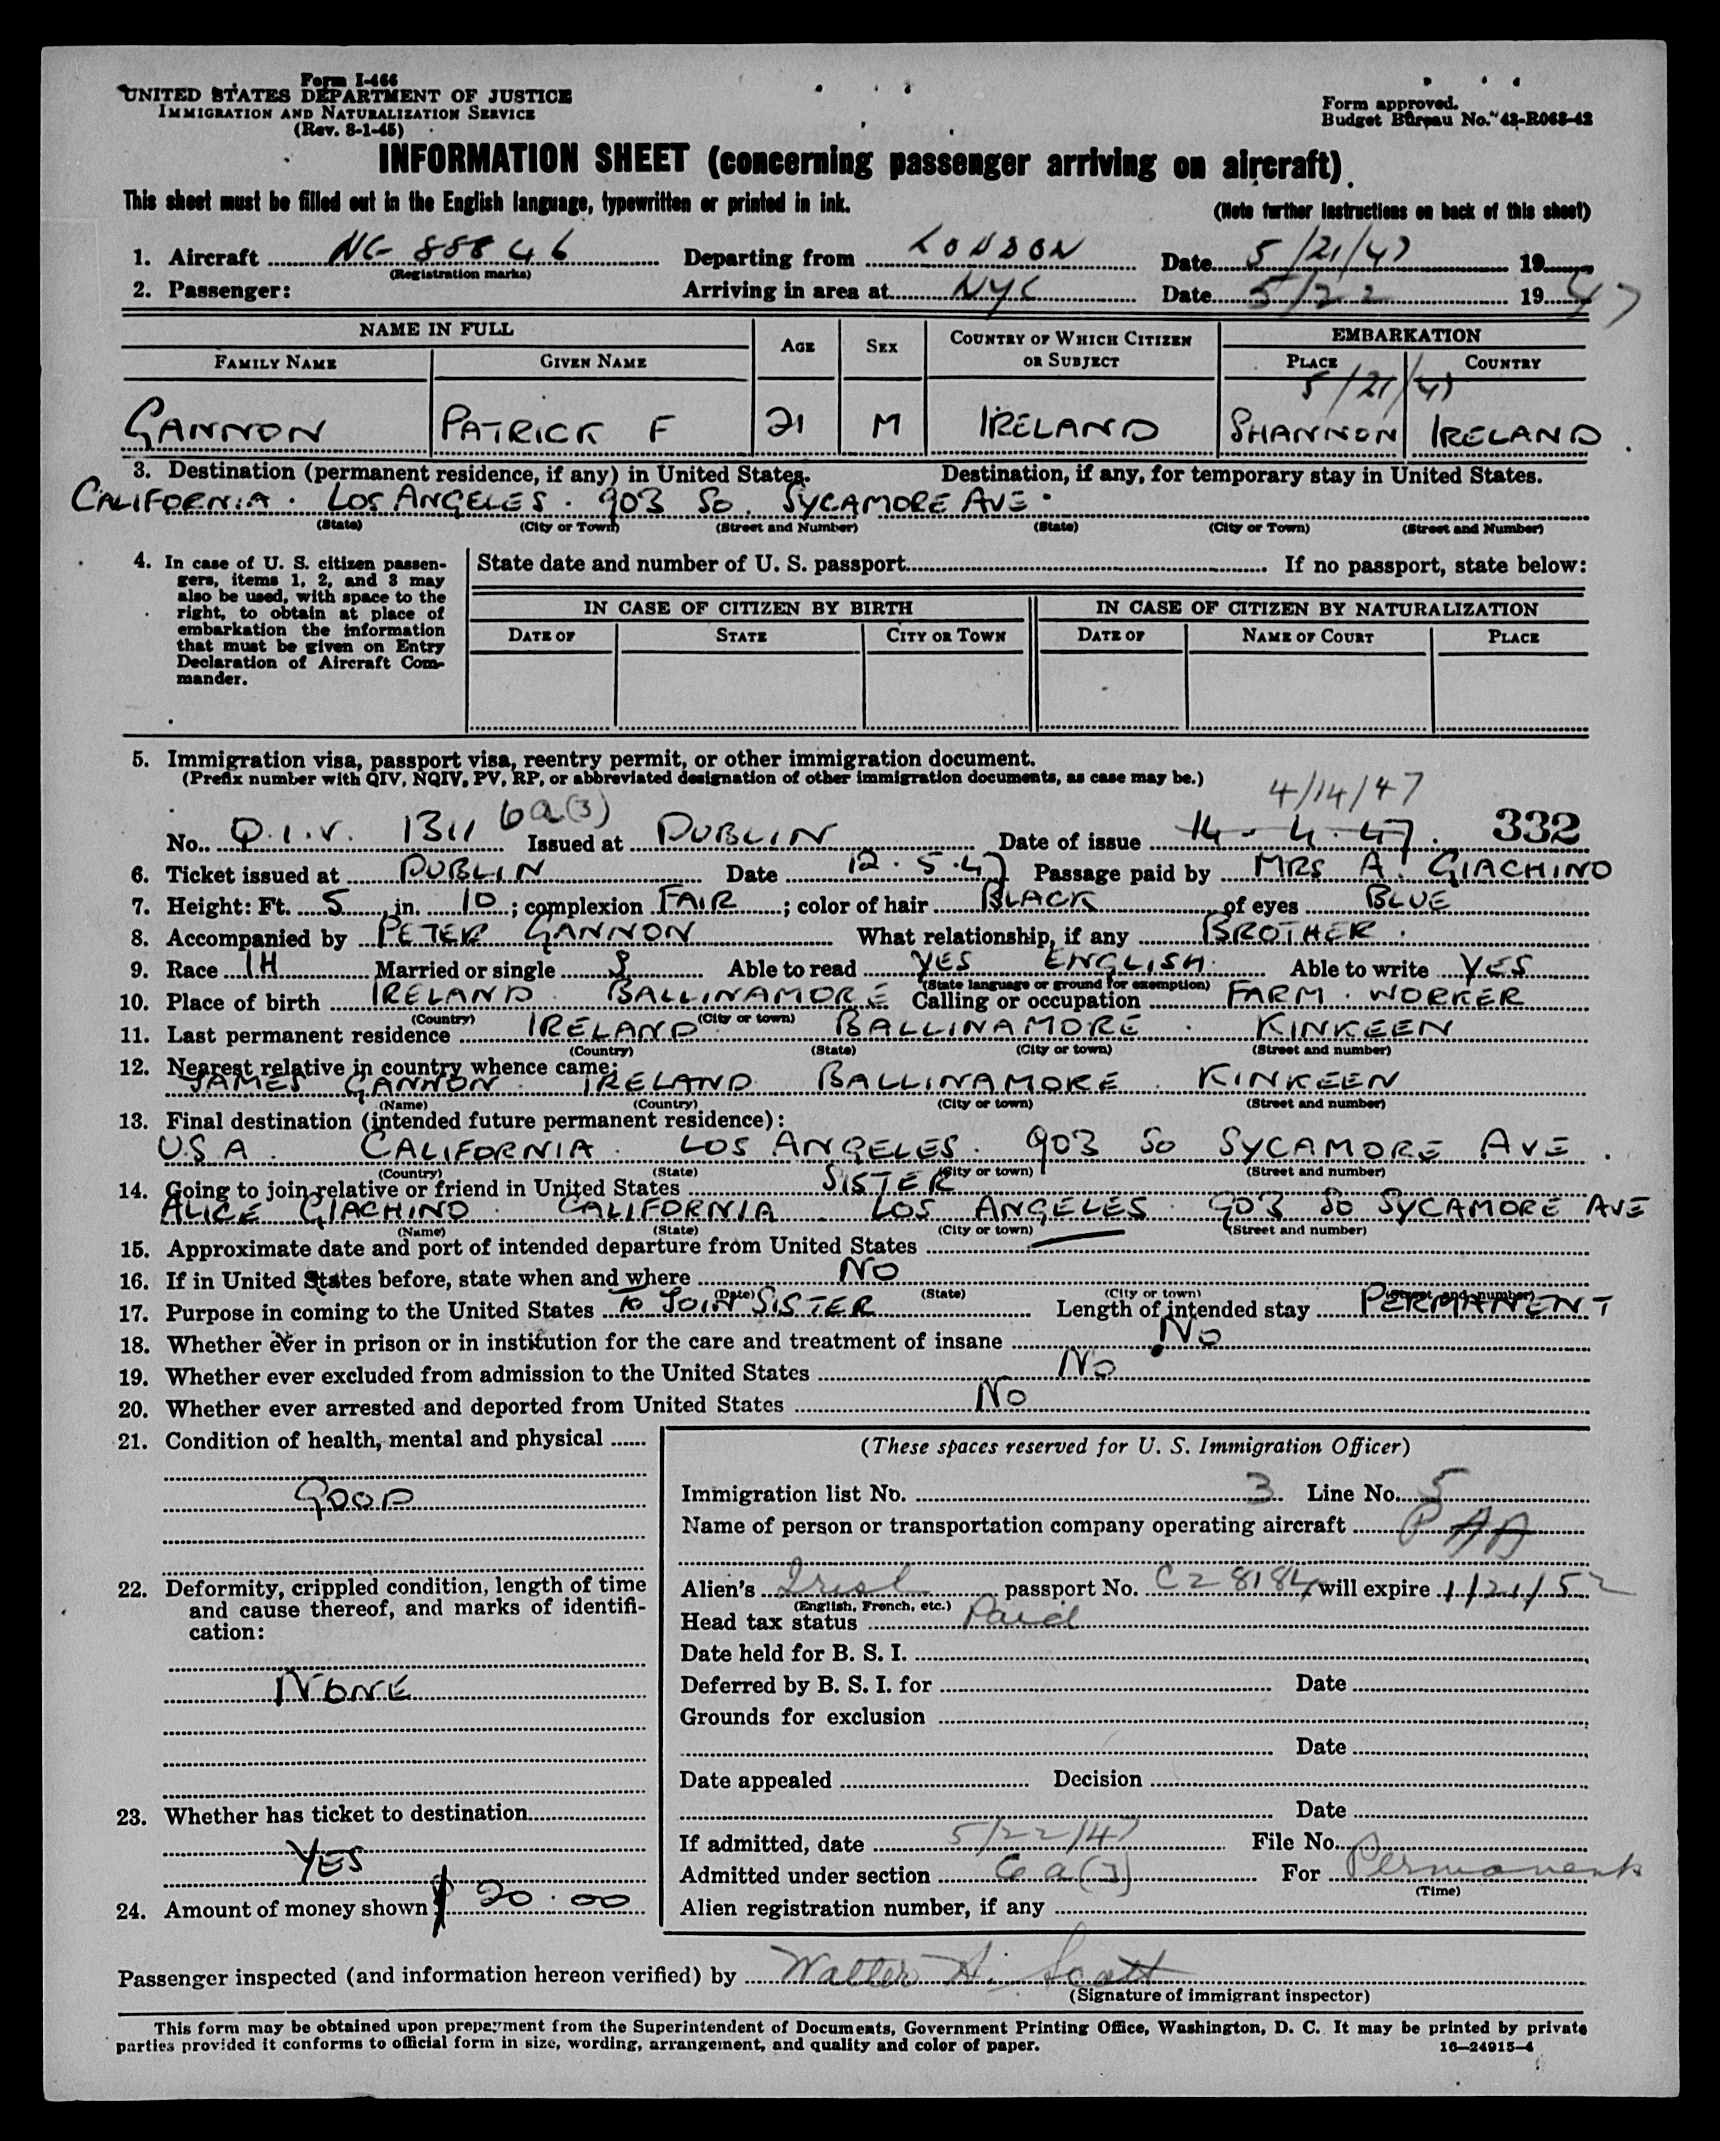 Form I-466
UNITED STATES DEPARTMENT OF JUSTICE
IMMIGRATION AND NATURALIZATION SERVICE
(Rev. 8-1-45)
Form approved.
Budget Bureau No. 43-R068-42
INFORMATION SHEET (concerning passenger arriving on aircraft)
This sheet must be filled out in the English language, typewritten or printed in ink.
(Note further instructions on back of this sheet)
1. Aircraft NC 88846 Departing from LONDON Date 5/21/47 19
(Registration marks)
2. Passenger: Arriving in area at NYC Date 5/22 1947
NAME IN FULL AGE SEX COUNTRY OF WHICH CITIZEN OR SUBJECT EMBARKATION
FAMILY NAME GIVEN NAME PLACE COUNTRY
5/21/47
GANNON PATRICK F 21 M IRELAND SHANNON IRELAND
3. Destination (permanent residence, if any) in United States. Destination, if any, for temporary stay in United States.
CALIFORNIA. LOS ANGELES. 903 SO. SYCAMORE AVE.
(State) (City or Town) (Street and Number) (State) (City or Town) (Street and Number)
4. In case of U. S. citizen passengers, items 1, 2, and 3 may also be used, with space to the right, to obtain at place of embarkation the information that must be given on Entry Declaration of Aircraft Commander.
State date and number of U. S. passport If no passport, state below:
IN CASE OF CITIZEN BY BIRTH IN CASE OF CITIZEN BY NATURALIZATION
DATE OF STATE CITY OR TOWN DATE OF NAME OF COURT PLACE
5. Immigration visa, passport visa, reentry permit, or other immigration document.
(Prefix number with QIV, NQIV, PV, RP, or abbreviated designation of other immigration documents, as case may be.)
4/14/47
No. Q.I.V. 1311 6a(3) Issued at DUBLIN Date of issue 14-4-47. 332
6. Ticket issued at DUBLIN Date 12.5.47 Passage paid by MRS A. GIACHINO
7. Height: Ft. 5, in. 10; complexion FAIR; color of hair BLACK of eyes BLUE
8. Accompanied by PETER GANNON What relationship, if any BROTHER.
9. Race IH Married or single S Able to read YES ENGLISH. Able to write YES
(State language or ground for exemption)
10. Place of birth IRELAND. BALLINAMORE Calling or occupation FARM. WORKER
(Country) (City or town)
11. Last permanent residence IRELAND. BALLINAMORE. KINKEEN
(Country) (State) (City or town) (Street and number)
12. Nearest relative in country whence came:
JAMES GANNON. IRELAND BALLINAMORE. KINKEEN
(Name) (Country) (City or town) (Street and number)
13. Final destination (intended future permanent residence):
U.S A. CALIFORNIA. LOS ANGELES. 903 SO SYCAMORE AVE.
(Country) (State) (City or town) (Street and number)
14. Going to join relative or friend in United States SISTER
ALICE GIACHINO. CALIFORNIA LOS ANGELES. 903 SO SYCAMORE AVE
(Name) (State) (City or town) (Street and number)
15. Approximate date and port of intended departure from United States
16. If in United States before, state when and where NO
(Date) (State) (City or town) (Street and number)
17. Purpose in coming to the United States TO JOIN SISTER Length of intended stay PERMANENT
18. Whether ever in prison or in institution for the care and treatment of insane NO
19. Whether ever excluded from admission to the United States NO
20. Whether ever arrested and deported from United States NO
21. Condition of health, mental and physical
GOOD
22. Deformity, crippled condition, length of time and cause thereof, and marks of identification:
NONE
23. Whether has ticket to destination
YES
24. Amount of money shown $ 20.00
(These spaces reserved for U. S. Immigration Officer)
Immigration list No. 3 Line No. 5
Name of person or transportation company operating aircraft PAA
Alien's Irish passport No. C28184 will expire 1/21/52
(English, French, etc.)
Head tax status Paid
Date held for B. S. I.
Deferred by B. S. I. for Date
Grounds for exclusion
Date
Date appealed Decision
Date
If admitted, date 5/22/47 File No.
Admitted under section 6a(3) For Permanent
(Time)
Alien registration number, if any
Passenger inspected (and information hereon verified) by Walter H. Scott
(Signature of immigrant inspector)
This form may be obtained upon prepayment from the Superintendent of Documents, Government Printing Office, Washington, D. C. It may be printed by private
parties provided it conforms to official form in size, wording, arrangement, and quality and color of paper.
16—24915-4